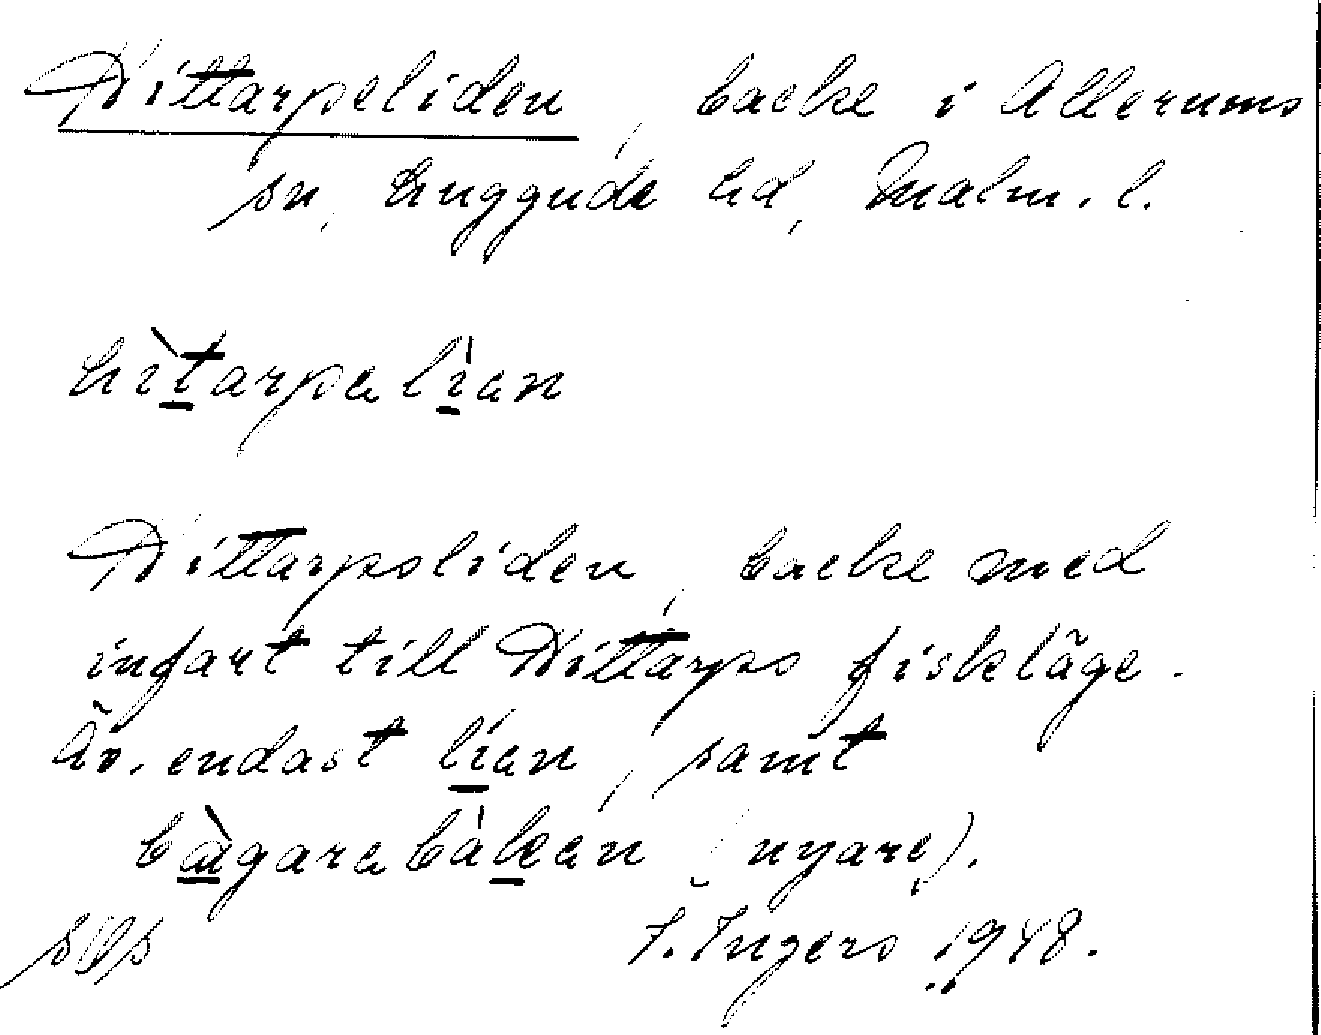 Hittarpeliden, backe i Allerums
sn, Luggude hd, Malm. l.
hìtarpəlìən
Hittarpsliden, backe med
infart till Hittarps fiskläge.
Äv. endast lìən, samt
bàgarəbàkən (nyare).
I. Ingers 1948.